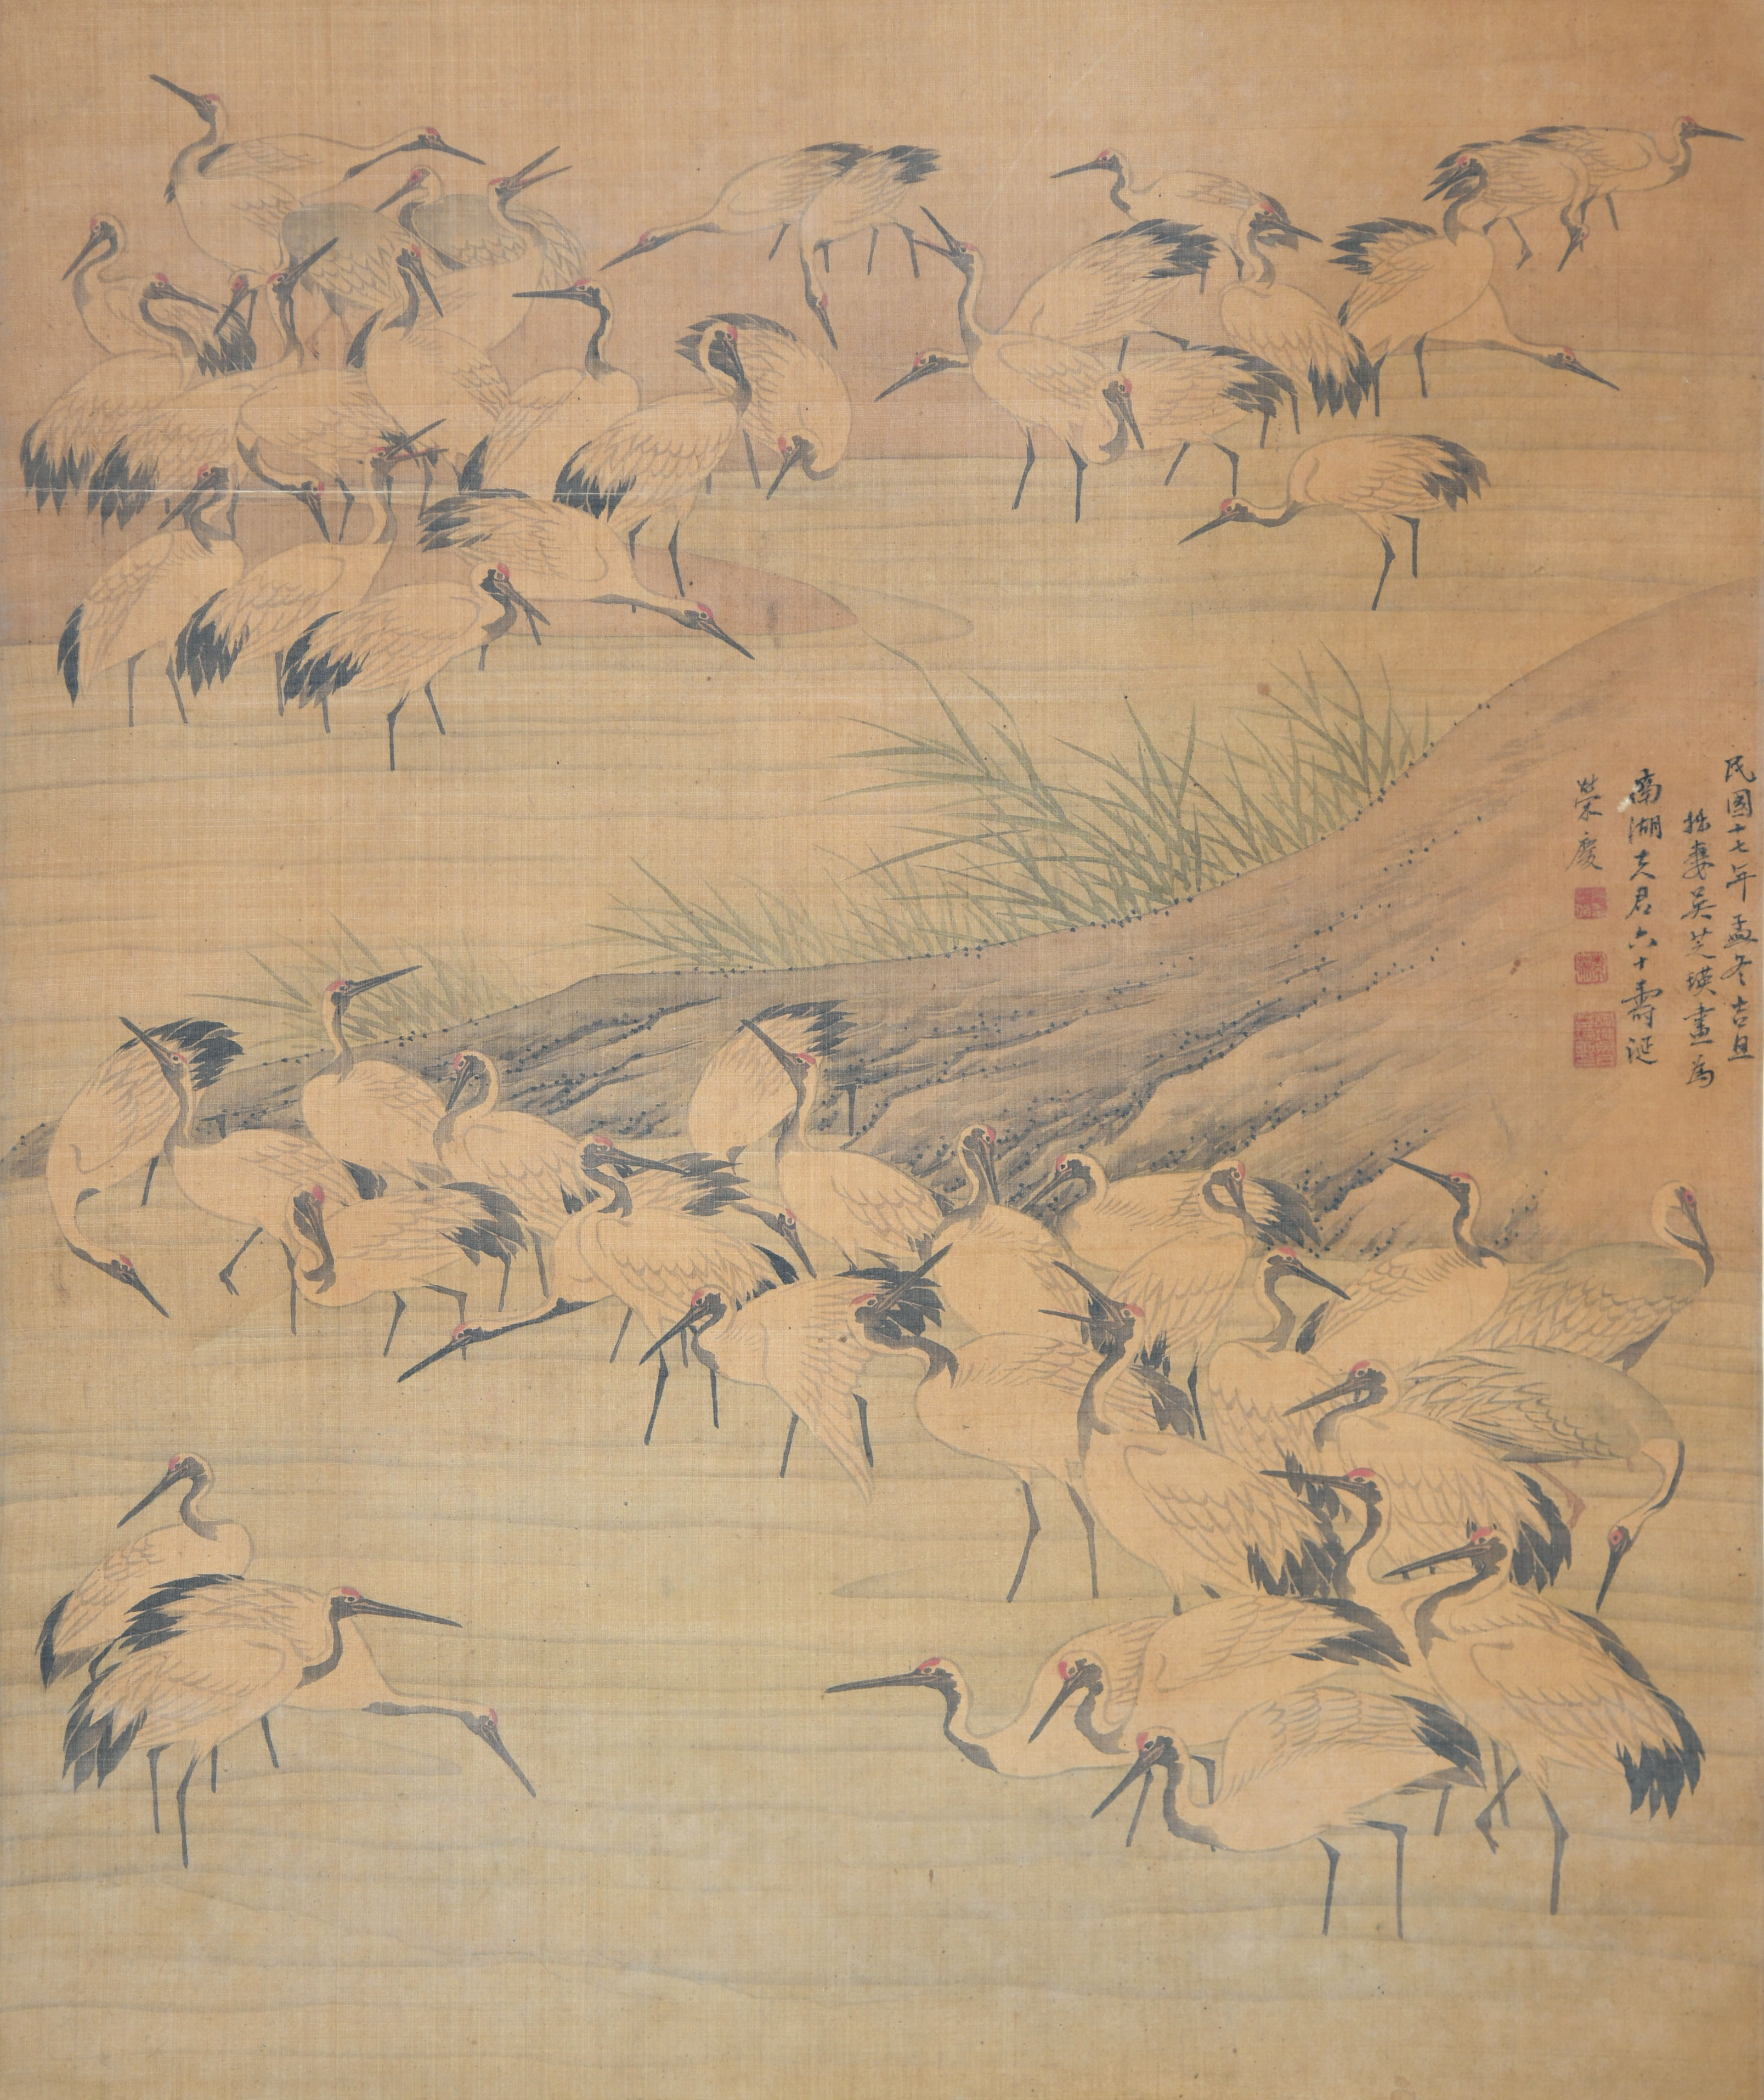 民國十七年孟冬吉旦
拙妻吳芝瑛畫爲
南湖夫君六十壽誕
榮慶